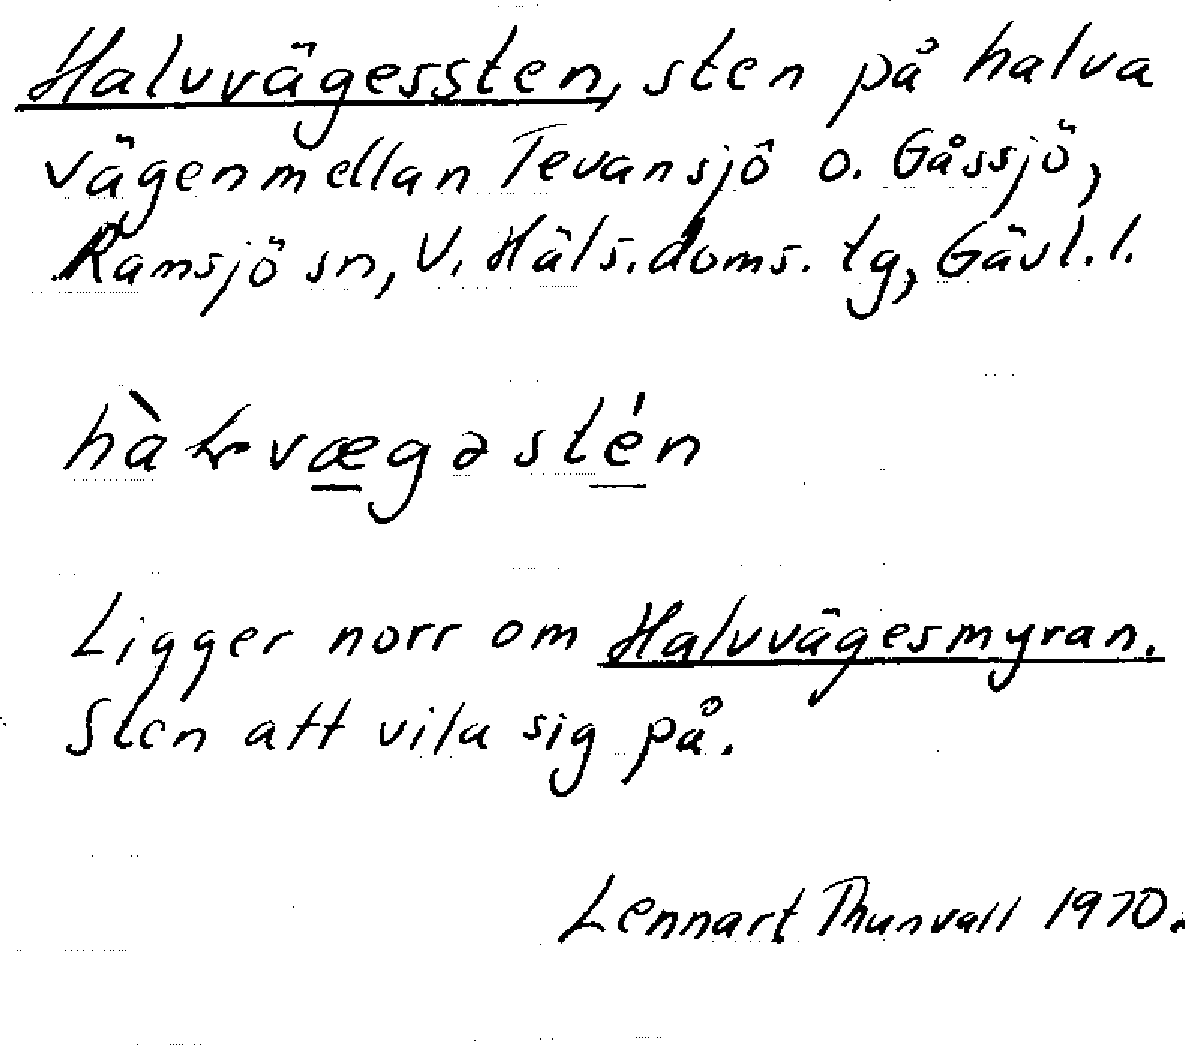 Halvvägessten, sten på halva
vägen mellan Tevansjö o. Gåssjö,
Ramsjö sn, V. Häls. doms. tg, Gävl. l.
Ligger norr om Halvvägesmyran.
Sten att vila sig på.
Lennart Thunvall 1970.